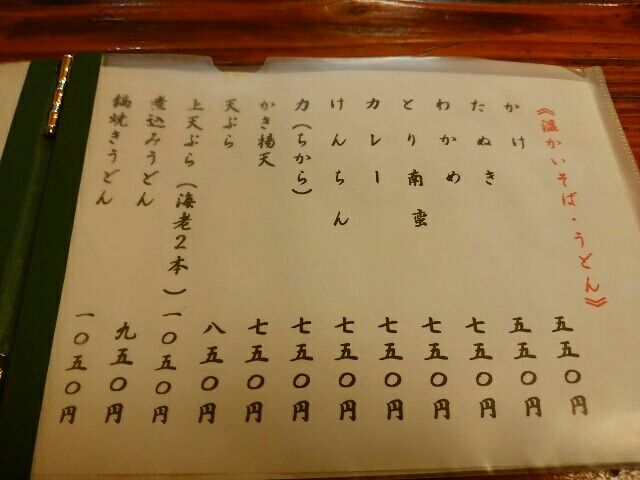 《温かいそば・うどん》
かけ 五五〇円
たぬき 五五〇円
わかめ 七五〇円
とり南蛮 七五〇円
カレー 七五〇円
けんちん 七五〇円
力(ちから) 七五〇円
かき揚天 七五〇円
天ぷら 八五〇円
上天ぷら(海老2本) 一〇五〇円
煮込みうどん 九五〇円
鍋焼きうどん 一〇五〇円